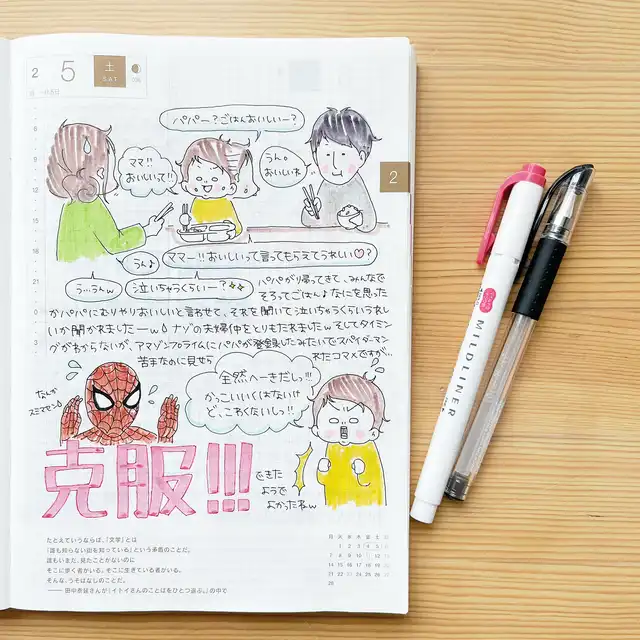 2
5
土
SAT
パパー?ごはんおいしいー?
ママ!!
おいしいて!!
うん。
おいしいね
2
うん♪
ママー!!おいしいって言ってもらえてうれしい♡?
う…うんw
泣いちゃうくらいー?
パパが帰ってきて、みんなで
そろってごはん♪なにを思った
かパパにむりやりおいしいと言わせて、それを聞いて泣いちゃうくらいうれし
いか聞かれましたーw
ナゾの夫婦仲をとりもたれましたwそしてタイミン
グがわからないが、アマゾンプライムにパパが登録したみたいでスパイダーマン
苦手なのに見せられたコマメですが…
なんか
スミマセン
全然へーきだし!!!
かっこいいくはないけ
ど、こわくないし!!
克服!!!
できた
ようで
よかったねw
MILDLINER
たとえていうならば、「文学」とは
「誰も知らない街を知っている」という矛盾のことだ。
誰もいまだ、見たことがないのに
そこに歩く者がいる。そこに生きている者がいる。
そんな、うそばなしのことだ。
月 火 水 木 金 土 日
1 2 3 4 5 6
7 8 9 10 11 12 13
14 15 16 17 18 19 20
21 22 23 24 25 26 27
28